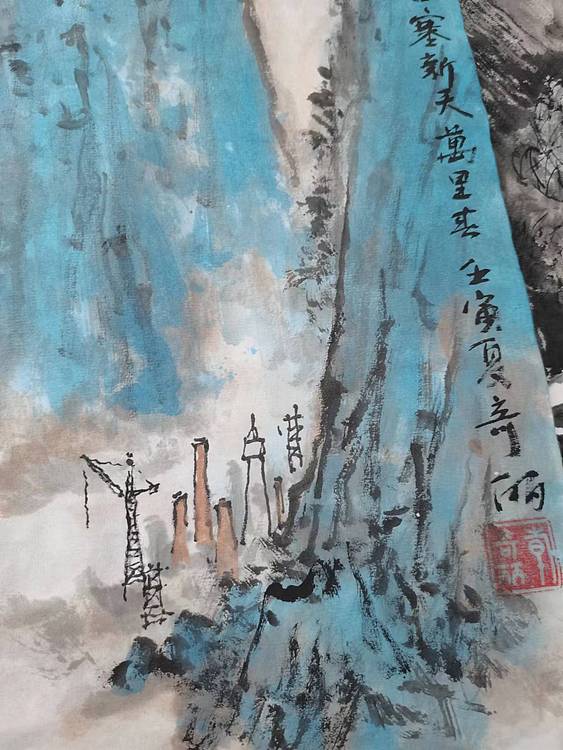 塞新天萬里春壬寅夏奇